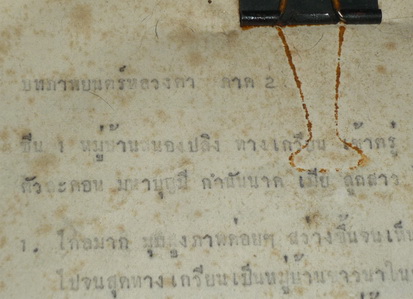 บทภาพยนตร์หลวงตา ภาค 2
ซีน 1 หมู่บ้านหนองปลิง ทางเกวียน
ตัวละคอน มหาบุญมี กำนันนาค เมีย ลูกสาว
1. ไกลมาก มุมสูงภาพค่อยๆ สว่างขึ้นจนเห็น
ไปจนสุดทาง เกวียนเป็นหมู่บ้านชาวนาใน